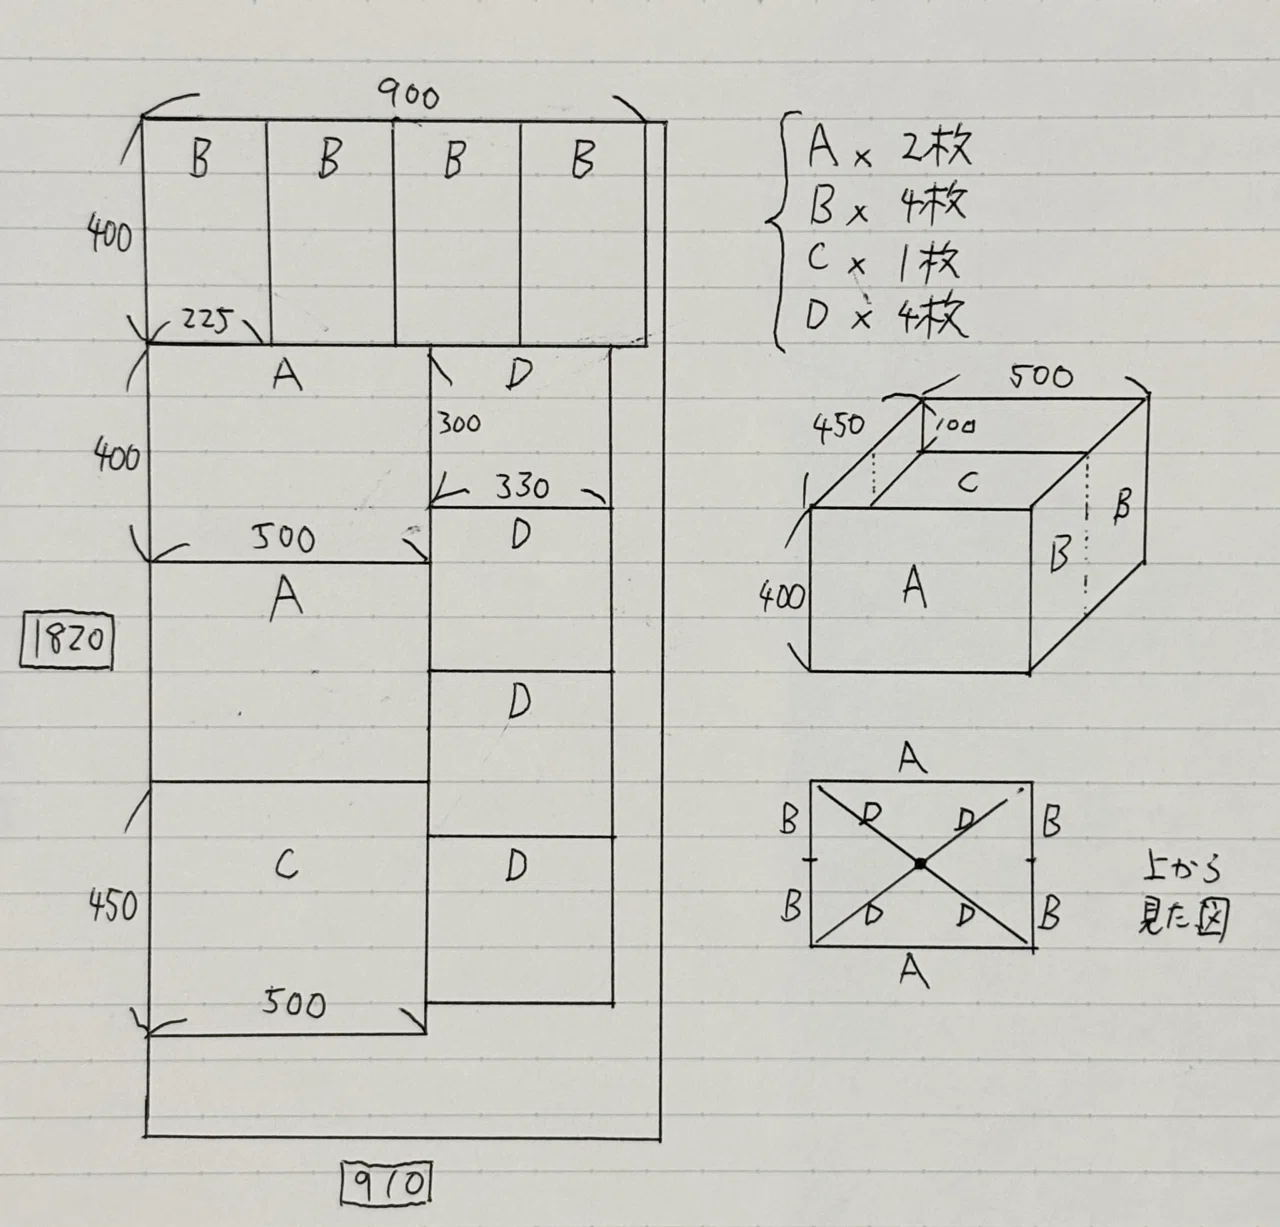 900
B B B B
400
225
A D
300
400
330
500
D
A
1820
D
C D
450
500
910
A × 2枚
B × 4枚
C × 1枚
D × 4枚
500
450
100
C
B
B
A
400
A
B D D B
B D D B
A
上から
見た図